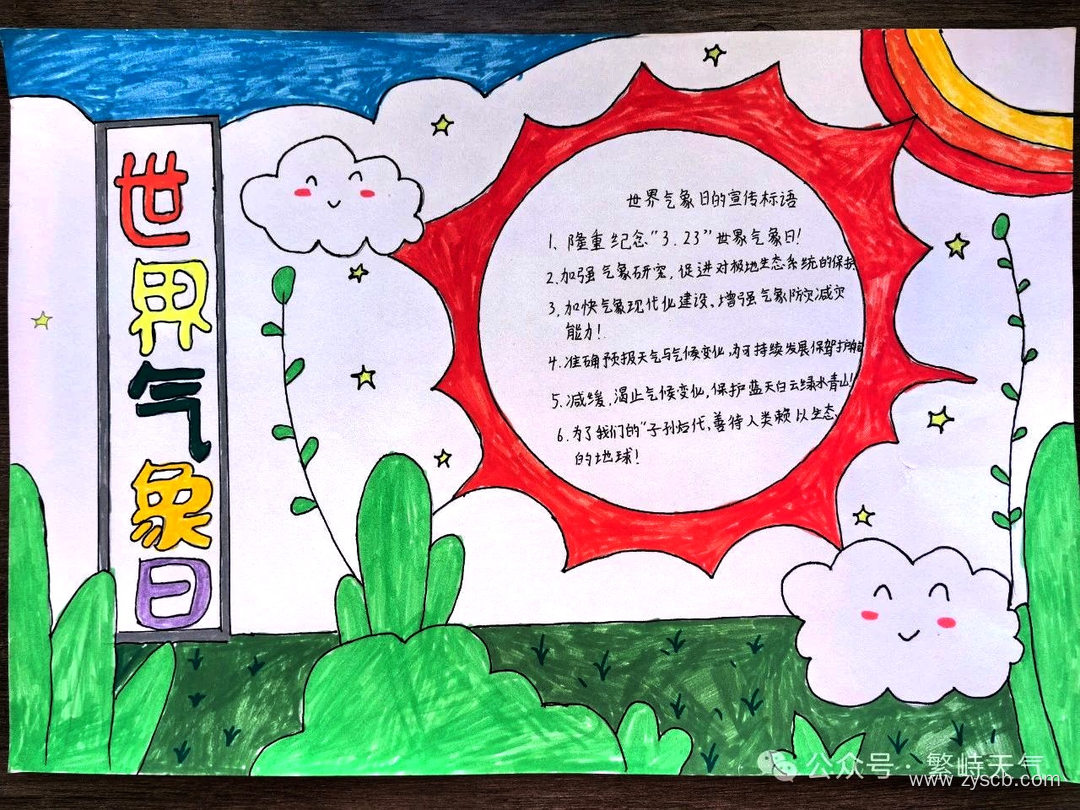 世界气象日
世界气象日的宣传标语
1. 隆重纪念“3.23”世界气象日!
2. 加强气象研究, 促进对极地生态系统的保护
3. 加快气象现代化建设、增强气象防灾减灾
能力!
4. 准确预报天气与气候变化,为可持续发展保驾护航
5. 减缓、遏止气候变化,保护蓝天白云绿水青山!
6. 为了我们的“子孙后代,善待人类赖以生态
的地球!
公众号·繁峙天气
www.zyscb.com